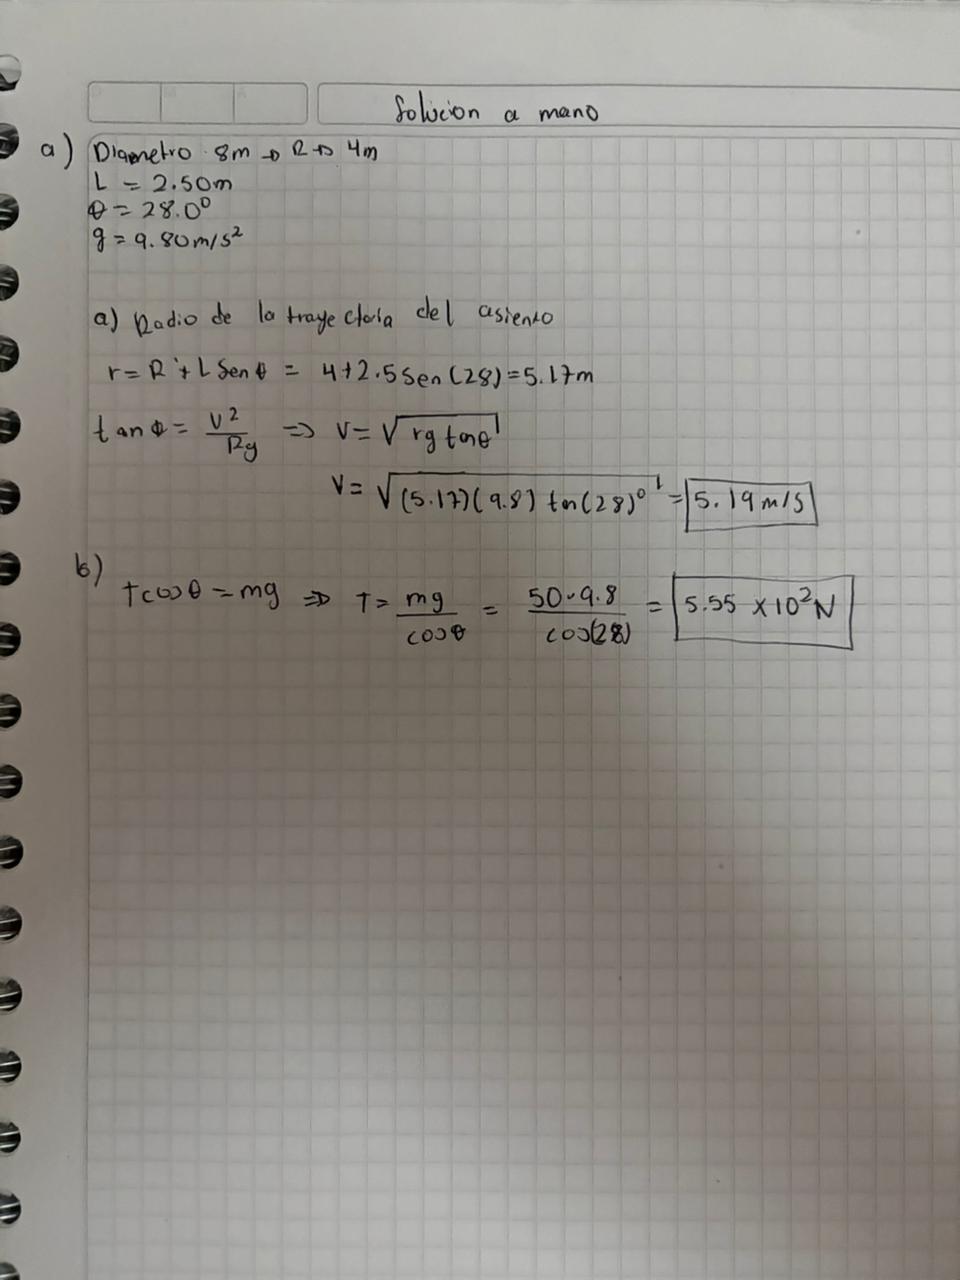 Solucion a mano
a) Diametro 8m → R → 4m
L = 2.50m
θ = 28.0°
g = 9.80m/s²
a) Radio de la trayectoria del asiento
r = R + L Sen θ = 4+2.5 Sen (28) = 5.17m
tan θ = V²/Rg ⇒ V = √(rg tanθ)
V = √((5.17)(9.8) tan(28)°) = 5.19 m/s
b)
Tcosθ = mg ⇒ T = mg/cosθ = 50·9.8/cos(28) = 5.55 x10² N